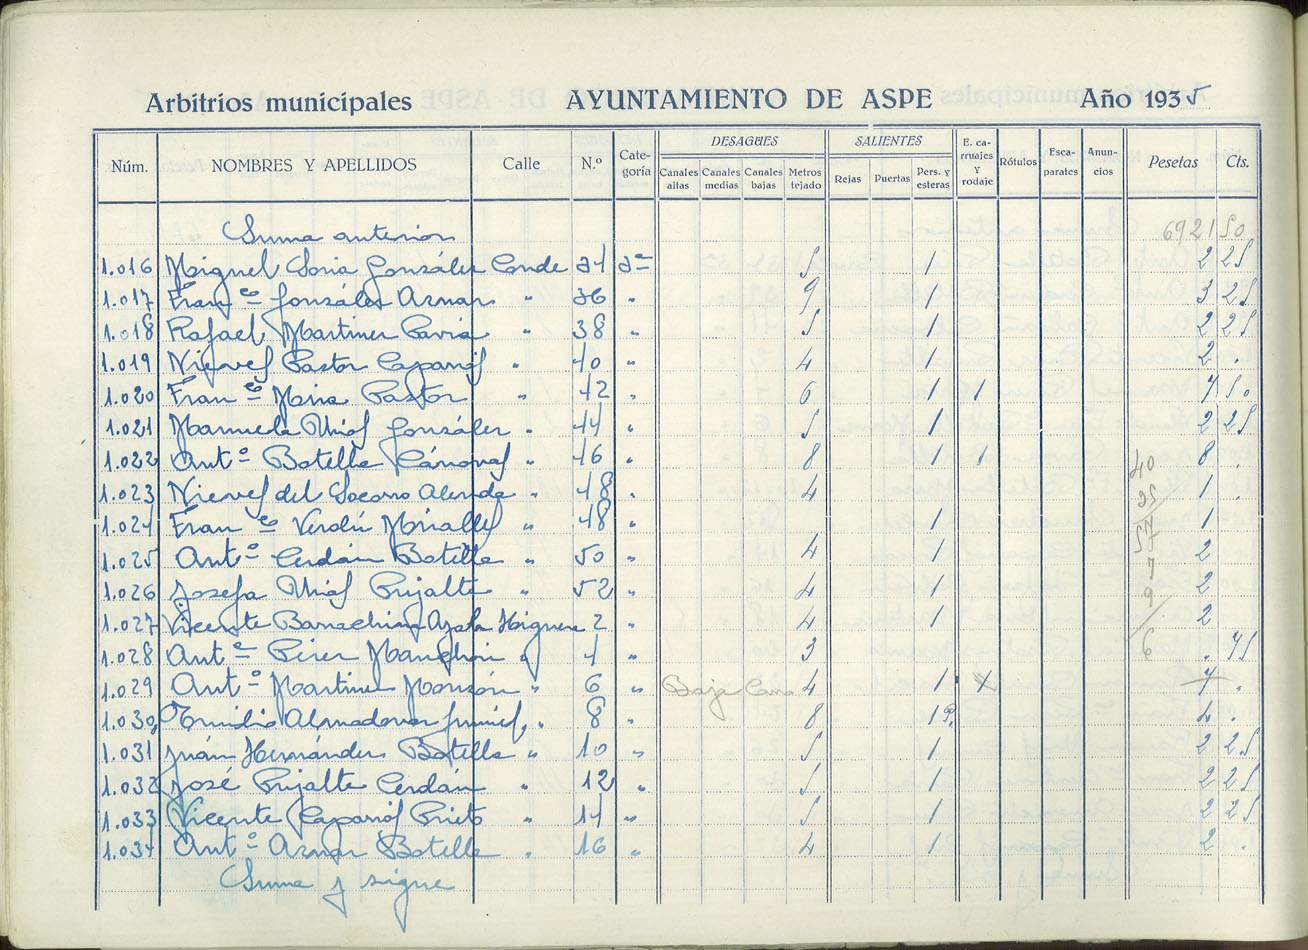 Arbitrios municipales AYUNTAMIENTO DE ASPE Año 1935
Núm. NOMBRES Y APELLIDOS Calle N.º Categoría DESAGÜES Canales altas Canales medias Canales bajas Metros tejado SALIENTES Rejas Puertas Pers. y esteras E. carruajes y rodaje Rótulos Escaparates Anuncios Pesetas Cts.
Suma anterior 6921 50
1.016 Miguel Soria González Conde 34 2ª 5 1 2 25
1.017 Franco González Aznar " 36 " 9 1 3 25
1.018 Rafael Martinez Pavia " 38 " 5 1 2 25
1.019 Nieves Pastor Caparrós " 40 " 4 1 2 .
1.020 Franco Mira Pastor " 42 " 6 1 1 7 50
1.021 Manuela Urios González " 44 " 5 1 2 25
1.022 Antº Botella Cánovas " 46 " 8 1 1 8 .
1.023 Nieves del Socorro Alenda " 48 " 4 1 .
1.024 Franco Verdú Miralles " 48 " 1 1
1.025 Antº Cerdán Botella " 50 " 4 1 2
1.026 Josefa Urios Pujalte " 52 " 4 1 2
1.027 Vicente Barrachina Ayala Higuera 2 " 4 1 2
1.028 Antª Pérez Manchón " 4 " 3 . 75
1.029 Antº Martinez Monzón " 6 " Baja 4 1 7 .
1.030 Emilio Almodovar " 8 " 8 1 P. 4 .
1.031 Juán Hernández Botella " 10 " 5 1 2 25
1.032 José Pujalte Cerdán " 12 " 5 1 2 25
1.033 Vicente Caparrós Prieto " 14 " 5 1 2 25
1.034 Antº Aznar Botella " 16 " 4 1 2 .
Suma y sigue